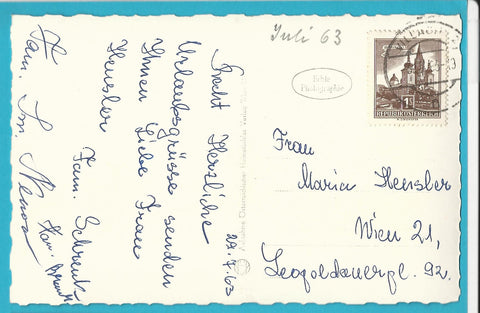 Juli 63
Echte
Photographie
REPUBLIK ÖSTERREICH
Recht Herzliche
Urlaubsgrüsse senden
Ihnen Liebe Frau
Hensler
Fam. Schrenk
29.7.63
Fam.
Frau
Maria Hensler
Wien 21,
Leopoldauerpl. 92.